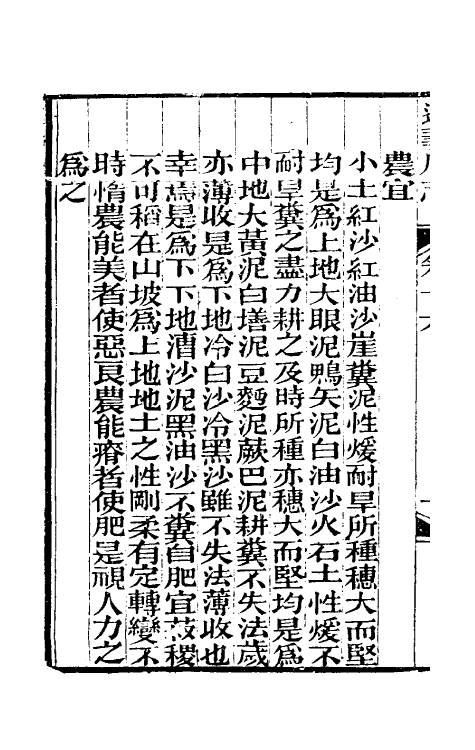 農宜
小土紅沙紅油沙崖糞泥性煖耐旱所種穗大而堅
均是爲上地大眼泥鴨矢泥白油沙火石土性煖不
耐旱糞之盡力耕之及時所種亦穗大而堅均是爲
中地大黃泥白墡泥豆麪泥蕨巴泥耕糞不失法歲
亦薄收是爲下地冷白沙冷黑沙雖不失法薄收也
幸焉是爲下下地酒沙泥黑油沙不糞自肥宜荍稷
不可稻在山坡爲上地地土之性剛柔有定轉變不
時惰農能美者使惡良農能瘠者使肥是視人力之
爲之